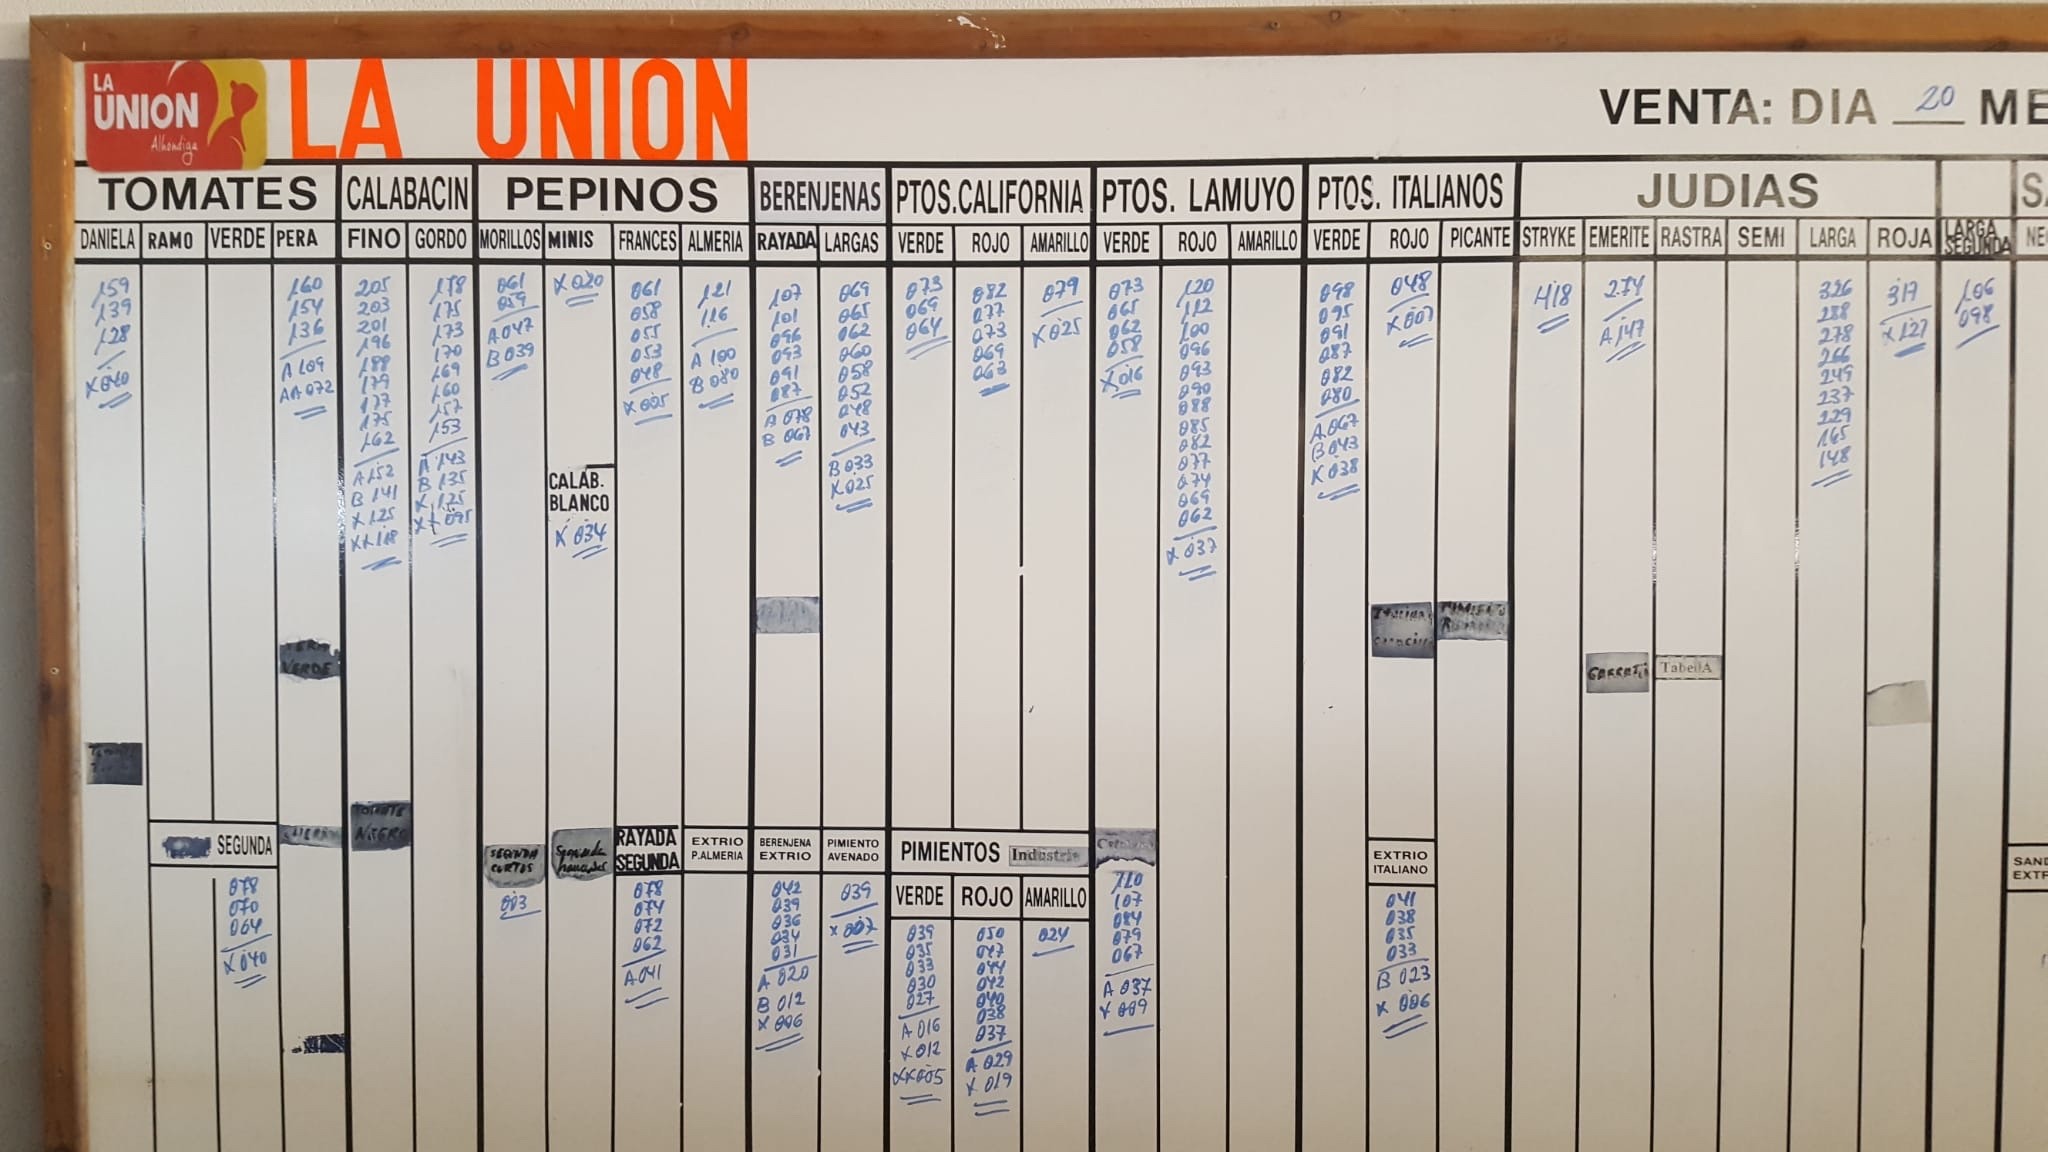 LA
UNION
Alhóndiga
LA UNION
VENTA: DIA 20 ME
TOMATES
DANIELA
159
139
128
X 040
RAMO
VERDE
PERA
160
154
136
A 109
AA 072
SEGUNDA
078
070
064
X 040
CALABACIN
FINO
205
203
201
196
188
179
177
175
162
A 152
B 141
X 125
XX 118
GORDO
178
175
173
170
169
160
157
153
A 143
B 135
X 125
XX 095
PEPINOS
MORILLOS
061
059
A 047
B 039
SEGUNDA
CORTOS
003
MINIS
X 020
CALAB.
BLANCO
X 034
FRANCES
061
058
055
053
048
X 005
RAYADA
SEGUNDA
078
074
072
062
A 041
ALMERIA
121
116
A 100
B 080
EXTRIO
P.ALMERIA
BERENJENAS
RAYADA
107
101
096
093
091
087
A 078
B 067
BERENJENA
EXTRIO
042
039
036
034
031
A 020
B 012
X 006
LARGAS
069
065
062
060
058
052
048
043
B 033
X 025
PIMIENTO
AVENADO
039
X 007
PTOS.CALIFORNIA
VERDE
073
069
064
ROJO
082
077
073
069
063
AMARILLO
079
X 025
PIMIENTOS Industria
VERDE
039
035
033
030
027
A 016
X 012
XX 005
ROJO
050
047
044
042
040
038
037
A 029
X 019
AMARILLO
024
PTOS. LAMUYO
VERDE
073
065
062
058
X 016
110
107
084
079
067
A 037
X 009
ROJO
120
112
100
096
093
090
088
085
082
077
074
069
062
X 037
AMARILLO
PTOS. ITALIANOS
VERDE
098
095
091
087
082
080
A 067
B 043
X 038
ROJO
048
X 007
EXTRIO
ITALIANO
041
038
035
033
B 023
X 006
PICANTE
JUDIAS
STRYKE
418
EMERITE
274
A 147
RASTRA
TabellA
SEMI
LARGA
326
288
278
266
249
237
229
165
148
ROJA
317
X 127
LARGA
SEGUNDA
106
098
SA
NEG
SAND
EXTR